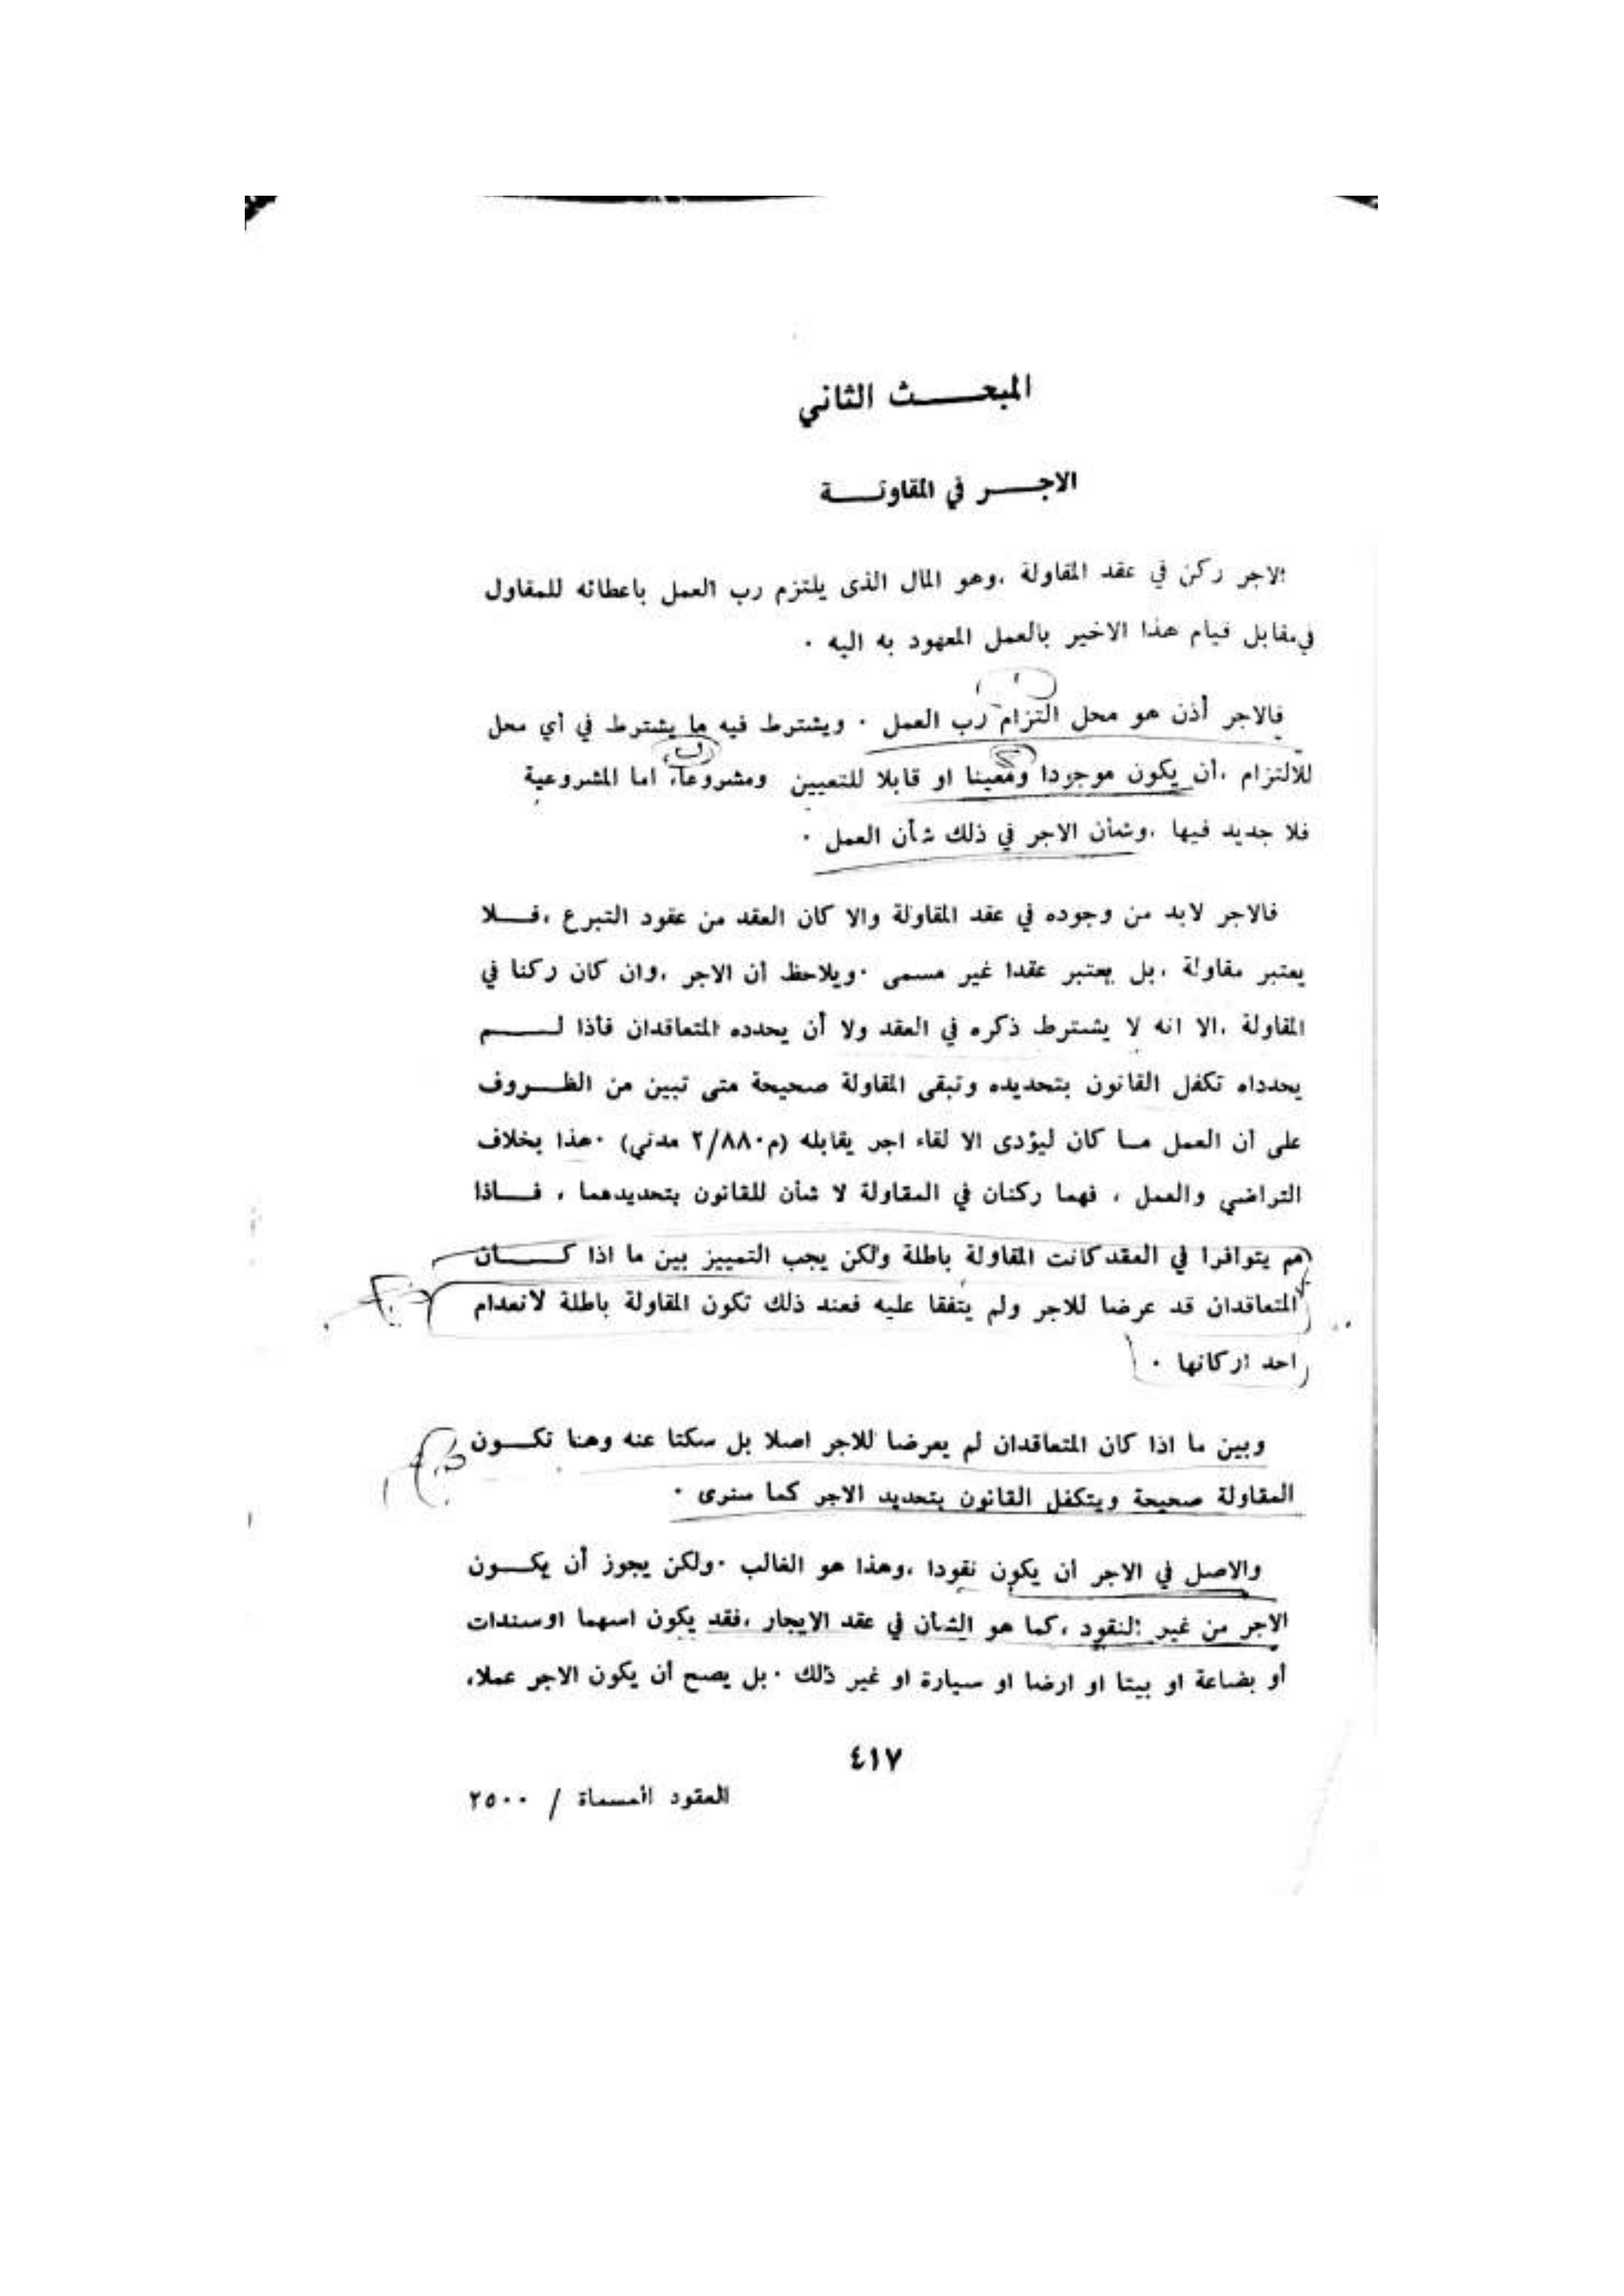 المبحـــث الثاني
الاجـــر في المقاولـــة
الاجر ركن في عقد المقاولة ،وهو المال الذى يلتزم رب العمل باعطائه للمقاول
في مقابل قيام هذا الاخير بالعمل المعهود به اليه ٠
فالاجر أذن هو محل التزام رب العمل ٠ ويشترط فيه ما يشترط في أي محل
للالتزام ،أن يكون موجودا ومعينا او قابلا للتعيين ومشروعا، اما المشروعية
فلا جديد فيها ،وشأن الاجر في ذلك شأن العمل ٠
فالاجر لابد من وجوده في عقد المقاولة والا كان العقد من عقود التبرع ،فـــلا
يعتبر مقاولة ،بل يعتبر عقدا غير مسمى ٠ويلاحظ أن الاجر ،وان كان ركنا في
المقاولة ،الا انه لا يشترط ذكره في العقد ولا أن يحدده المتعاقدان فأذا لـــم
يحدداه تكفل القانون بتحديده وتبقى المقاولة صحيحة متى تبين من الظـــروف
على أن العمل مـا كان ليؤدى الا لقاء اجر يقابله (م٢/٨٨٠ مدني) ٠هذا بخلاف
التراضي والعمل ، فهما ركنان في المقاولة لا شأن للقانون بتحديدهما ، فـــاذا
لم يتوافرا في العقد كانت المقاولة باطلة ولكن يجب التمييز بين ما اذا كـــان
المتعاقدان قد عرضا للاجر ولم يتفقا عليه فعند ذلك تكون المقاولة باطلة لانعدام
احد اركانها ٠
وبين ما اذا كان المتعاقدان لم يعرضا للاجر اصلا بل سكتا عنه وهنا تكـــون
المقاولة صحيحة ويتكفل القانون بتحديد الاجر كما سنرى ٠
والاصل في الاجر ان يكون نقودا ،وهذا هو الغالب ٠ولكن يجوز أن يكـــون
الاجر من غير النقود ،كما هو الشأن في عقد الايجار ،فقد يكون اسهما اوسندات
أو بضاعة او بيتا او ارضا او سيارة او غير ذلك ٠بل يصح أن يكون الاجر عملا،
٤١٧
العقود المسماة / ٢٥٠٠